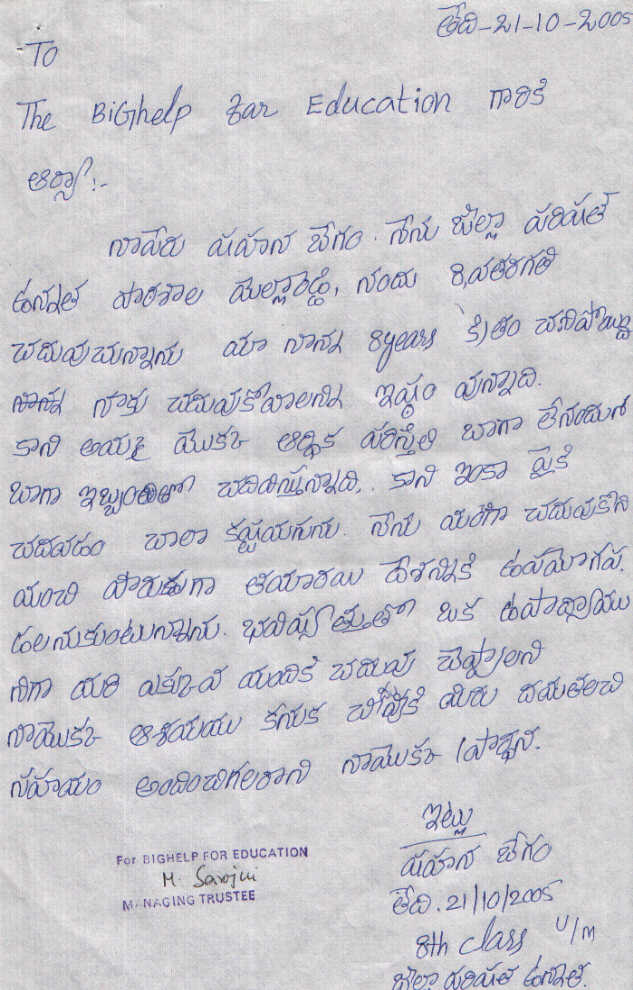 తేది-21-10-2005
To
The BiGhelp For Education గారికి
ఆర్యా!:-
నాపేరు షహన బేగం. నేను జిల్లా పరిషత్
ఉన్నత పాఠశాల యెల్లారెడ్డి, నందు 8, వతరగతి
చదువుచున్నాను మా నాన్న 8years క్రితం చనిపోయి
నాకు చదువుకోవాలని ఇష్టం వున్నాది.
కాని అమ్మ యొక్క ఆర్థిక పరిస్థితి బాగా లేనందున
బాగా ఇబ్బందితో చదివిస్తున్నాది. కాని ఇంకా పైకి
చదవడం చాలా కష్టమగును. నేను మంచిగా చదువుకొని
మంచి పౌరుడుగా తయారయి దేశానికి ఉపయోగప
డాలనుకుంటున్నాను. భవిష్యత్తులో ఒక ఉపాధ్యాయు
నిగా మరి ఎక్కువ మందికి చదువు చెప్పాలని
నాయొక్క ఆశయము కనుక మీరు దయతలచి
సహాయం అందించగలరాని నాయొక్క ప్రార్థన.
ఇట్లు
షహన బేగం
తేది. 21/10/2005
8th class U/M
జిల్లా పరిషత్ ఉన్నత.
For BIGHELP FOR EDUCATION
M. Sarojini
MANAGING TRUSTEE